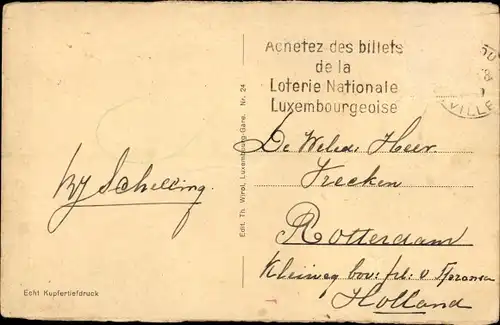 Achetez des billets
de la
Loterie Nationale
Luxembourgeoise
VILLE
De Weled: Heer
Trecken
Rotterdam
Kleiweg bov:
Holland
Schelling.
Edit. Th. Wirol, Luxembourg-Gare. Nr. 24
Echt Kupfertiefdruck